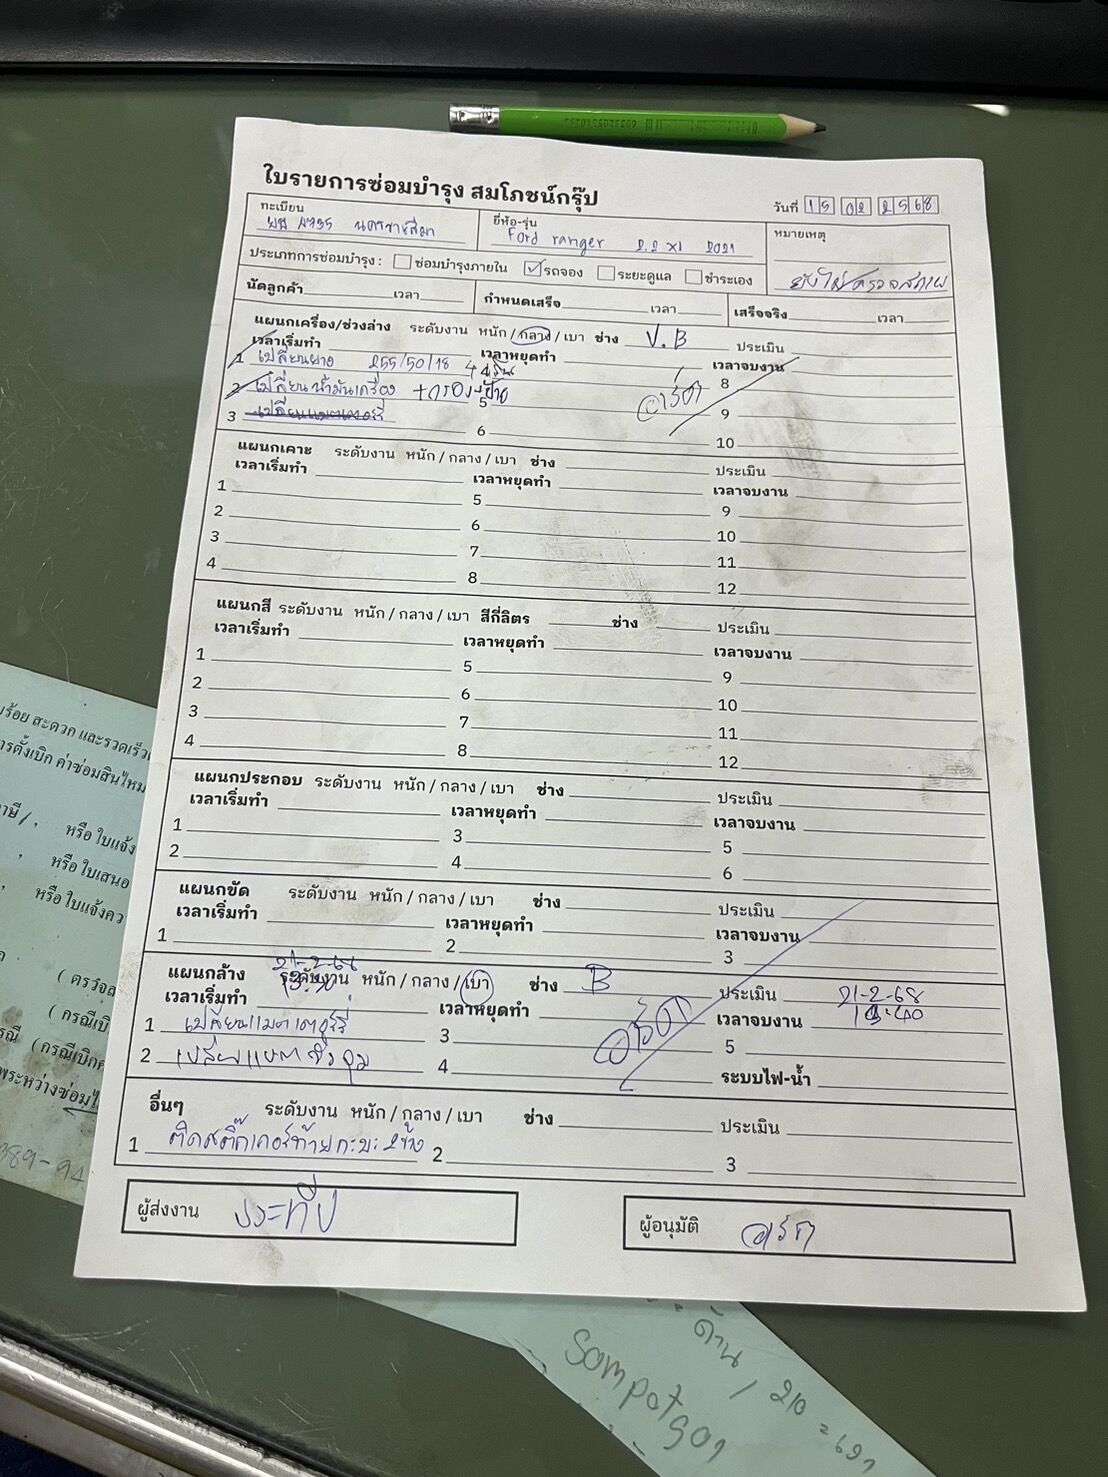 ใบรายการซ่อมบำรุง สมโภชน์กรุ๊ป
วันที่ 15 02 2568
ทะเบียน นครราชสีมา
ยี่ห้อ-รุ่น Ford ranger 2.2 XL 2021
หมายเหตุ
ประเภทการซ่อมบำรุง : ซ่อมบำรุงภายใน รถจอง ระยะดูแล ชำระเอง
ยังไม่ตรวจสภาพ
นัดลูกค้า เวลา กำหนดเสร็จ เวลา เสร็จจริง เวลา
แผนกเครื่อง/ช่วงล่าง ระดับงาน หนัก / กลาง / เบา ช่าง V.B ประเมิน
เวลาเริ่มทำ เวลาหยุดทำ เวลาจบงาน
1 เปลี่ยนยาง 255/50/18 4 เส้น 8
2 เปลี่ยนน้ำมันเครื่อง +กรอง+ป้าย 5 9
3 เปลี่ยนแบตเตอรี่ 6 10
แผนกเคาะ ระดับงาน หนัก / กลาง / เบา ช่าง ประเมิน
เวลาเริ่มทำ เวลาหยุดทำ เวลาจบงาน
1 5 9
2 6 10
3 7 11
4 8 12
แผนกสี ระดับงาน หนัก / กลาง / เบา สีกี่ลิตร ช่าง ประเมิน
เวลาเริ่มทำ เวลาหยุดทำ เวลาจบงาน
1 5 9
2 6 10
3 7 11
4 8 12
แผนกประกอบ ระดับงาน หนัก / กลาง / เบา ช่าง ประเมิน
เวลาเริ่มทำ เวลาหยุดทำ เวลาจบงาน
1 3 5
2 4 6
แผนกขัด ระดับงาน หนัก / กลาง / เบา ช่าง ประเมิน
เวลาเริ่มทำ เวลาหยุดทำ เวลาจบงาน
1 2 3
21-2-68
แผนกล้าง ระดับงาน หนัก / กลาง / เบา ช่าง B ประเมิน 21-2-68
เวลาเริ่มทำ เวลาหยุดทำ เวลาจบงาน
1 เปลี่ยนแบตเตอร์รี่ 3 5
2 4 ระบบไฟ-น้ำ
อื่นๆ ระดับงาน หนัก / กลาง / เบา ช่าง ประเมิน
1 ติดสติ๊กเกอร์ท้ายกะบะ 2 3
ผู้ส่งงาน ประทีป ผู้อนุมัติ
บร้อย สะดวก และรวดเร็ว
การตั้งเบิก ค่าซ่อมสินไหม
หรือ ใบแจ้ง
หรือ ใบเสนอ
หรือ ใบแจ้งคว
( ตรวจส
( กรณีเบิ
( กรณีเบิก
พระหว่างซ่อม
389-94
ด้าน / 210